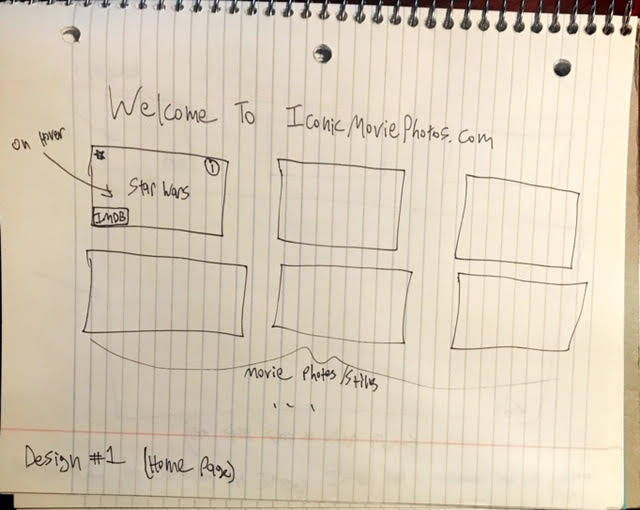 Welcome To IconicMoviePhotos.com
On Hover
Star Wars
IMDB
Movie Photos/Stills
...
Design #1 (Home Page)